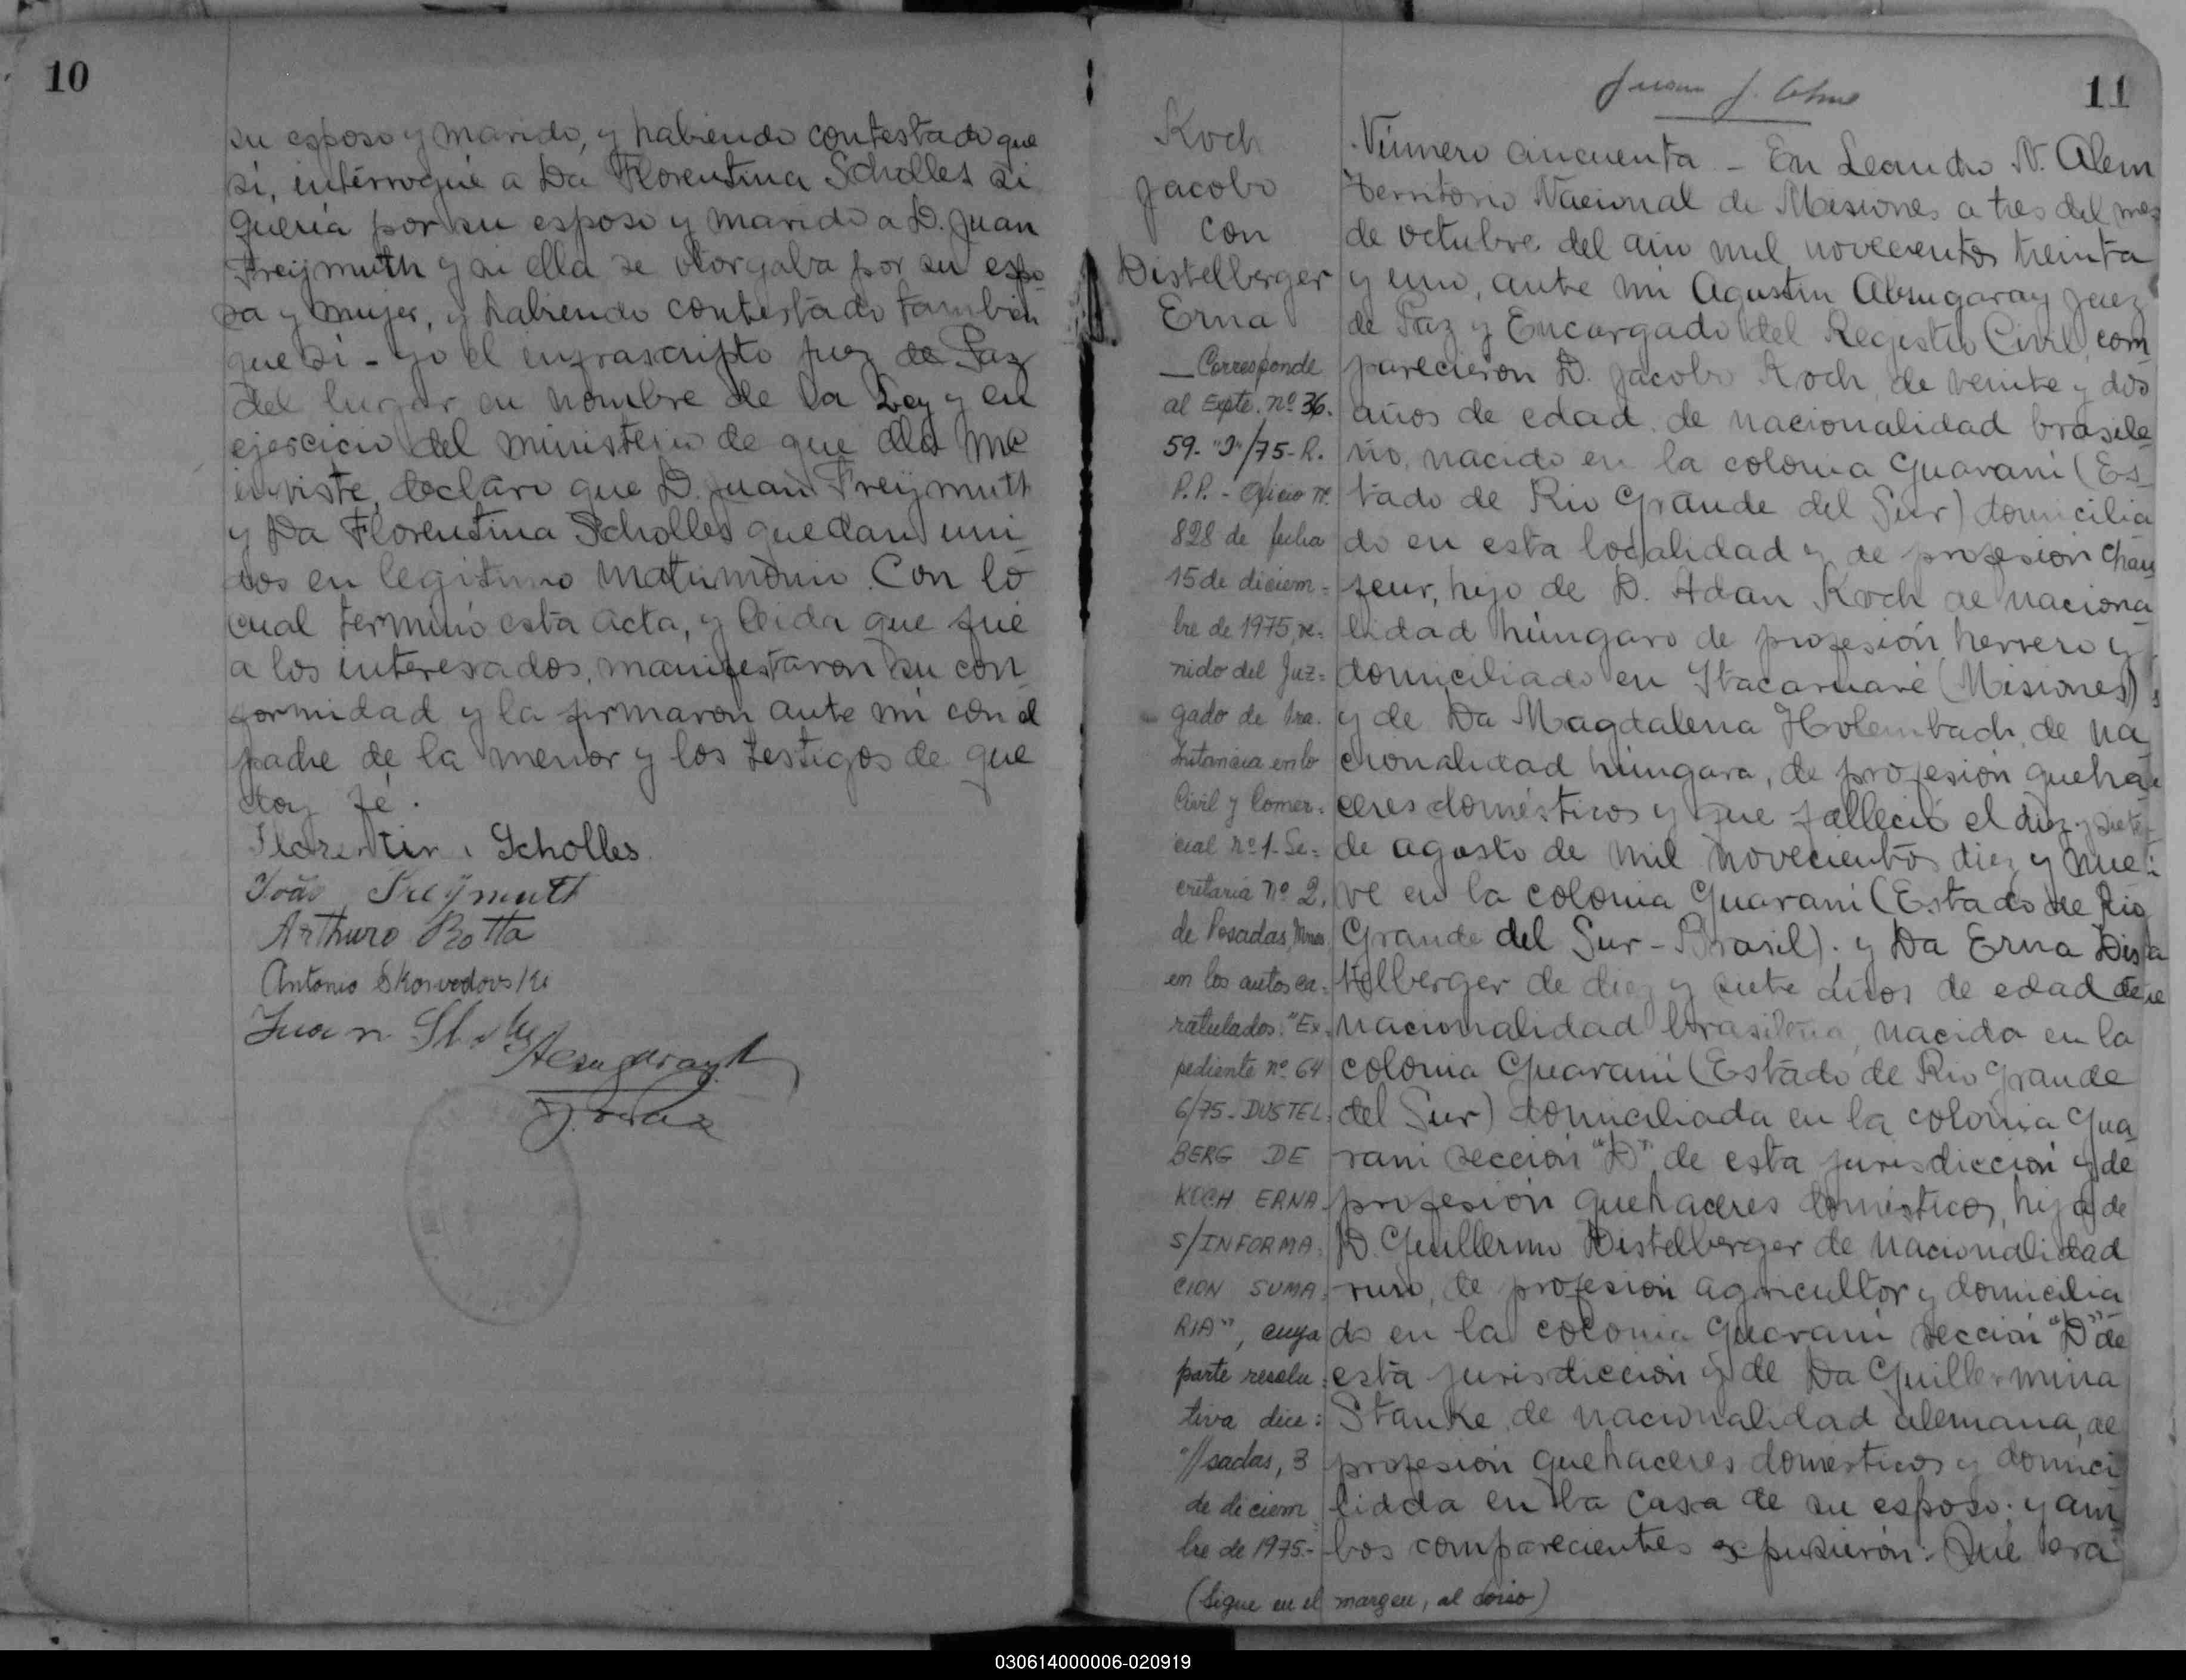 10
su esposo y marido, y habiendo contestado que
si, intérrogué a Da Florentina Scholles si
queria por su esposo y marido a D. Juan
Freymuth y si ella se otorgaba por su espo-
sa y mujer, y habiendo contestado tambien
que si - yo el infrascripto juez de Paz
del lugar en nombre de la Ley y en
ejercicio del ministerio de que ella me
inviste, declaro que D. Juan Freymuth
y Da Florentina Scholles quedan uni-
dos en legitimo matrimonio. Con lo
cual terminó esta acta, y leida que fué
a los interesados, manifestaron su con-
formidad y la firmaron ante mi con el
padre de la menor y los testigos de que
doy fé.
Florentina Scholles
João Freymuth
Arthuro Botta
Antonio Skowodovski
Juan
11
Koch
Jacobo
con
Distelberger
Erna
— Corresponde
al Expte. nº 36.
59-"D"/75-R.
P.P. - Oficio nº
828 de fecha
15 de diciem=
bre de 1975, ve=
nido del Juz=
gado de 1ra.
Instancia en lo
Civil y Comer=
cial nº 1-Se=
cretaria nº 2,
de Posadas, Mnes
en los autos ca=
ratulados: "Ex=
pediente nº 64
6/75- DISTEL=
BERG DE
KOCH ERNA
S/INFORMA=
CION SUMA=
RIA", cuya
parte resolu=
tiva dice:
"//sadas, 3
de diciem=
bre de 1975.-
(Sigue en el margen, al dorso)
Número cincuenta - En Leandro N. Alem
Territorio Nacional de Misiones a tres del mes
de octubre del año mil novecientos treinta
y uno, ante mi Agustin Alsugaray Juez
de Paz y Encargado del Registro Civil, com-
parecieron D. Jacobo Koch, de veinte y dos
años de edad, de nacionalidad brasile-
ño, nacido en la colonia Guarani (Es-
tado de Rio Grande del Sur) domicilia
do en esta localidad y de profesión chau
feur, hijo de D. Adan Koch de naciona-
lidad húngaro de profesión herrero y
domiciliado en Itacaruaré (Misiones)
y de Da Magdalena Holembach, de na-
cionalidad húngara, de profesión queha-
ceres domésticos y que falleció el diez y siete
de agosto de mil novecientos diez y nue=
ve en la colonia Guarani (Estado de Rio
Grande del Sur-Brasil). y Da Erna Dis
telberger de diez y siete años de edad de
nacionalidad brasileña, nacida en la
colonia Guarani (Estado de Rio Grande
del Sur) domiciliada en la colonia Gua
rani sección "D" de esta jurisdicción y de
profesión quehaceres domésticos, hija de
D. Guillermo Distelberger de nacionalidad
ruso, de profesion agricultor y domicilia
do en la colonia Guarani sección "D" de
esta jurisdiccion y de Da Guillermina
Stanke de nacionalidad alemana, de
profesion quehaceres domésticos y domici
liada en la casa de su esposo; y am-
bos comparecientes expusieron: Que era
030614000006-020919